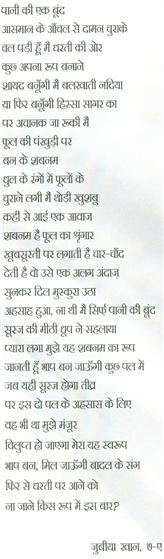 पानी की एक बूंद
आसमान के आँचल से दामन चुराके
चल पड़ी हूँ मैं धरती की ओर
कुछ अपना रूप बनाने
शायद बनूँगी मैं बलखाती नदिया
या फिर बनूँगी हिस्सा सागर का
पर अचानक जा रूकी मैं
फूल की पंखुड़ी पर
बन के शबनम
घुल के रंगों में फूलों के
चुराने लगी मैं थोड़ी खुशबू
कहीं से आई एक आवाज
शबनम है फूल का श्रृंगार
खूबसूरती पर लगाती है चार-चाँद
देती है वो उसे एक अलग अंदाज
सुनकर दिल मुस्कुरा उठा
अहसाह हुआ, ना थी मैं सिर्फ पानी की बूंद
सूरज की मीठी धूप ने सहलाया
प्यारा लगा मुझे यह शबनम का रूप
जानती हूँ भाप बन जाऊँगी कुछ पल में
जब यही सूरज होगा तीव्र
पर इस दो पल के अहसास के लिए
वह भी था मुझे मंजूर
विलुप्त हो जाएगा मेरा यह स्वरूप
भाप बन, मिल जाऊँगी बादल के संग
फिर से धरती पर आने को
ना जाने किस रूप में इस बार?
जुबीया खान, ७-ए